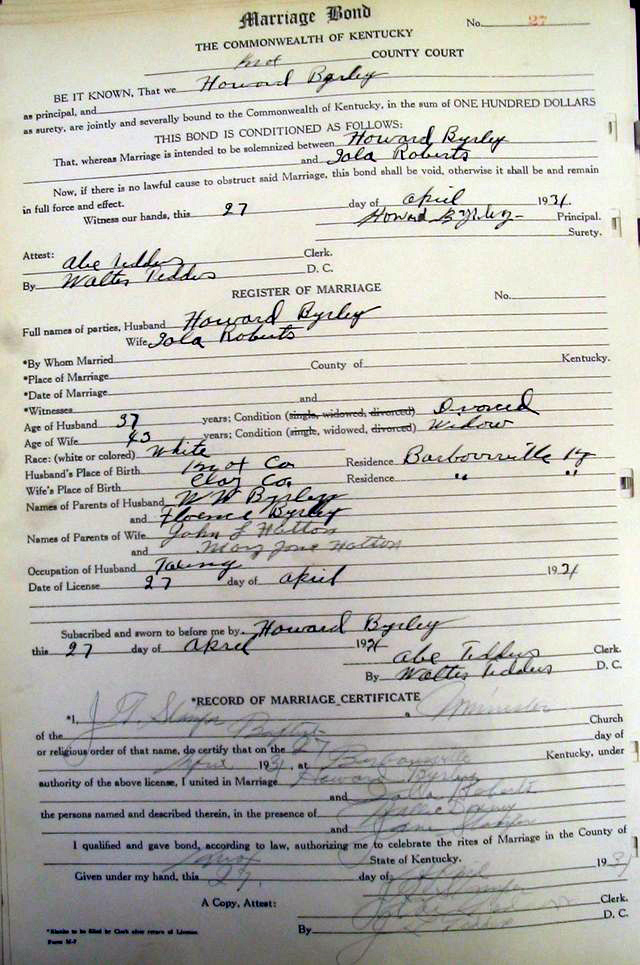 Marriage Bond
No. 27
THE COMMONWEALTH OF KENTUCKY
Knox COUNTY COURT
BE IT KNOWN, That we Howard Byrley
as principal, and
as surety, are jointly and severally bound to the Commonwealth of Kentucky, in the sum of ONE HUNDRED DOLLARS
THIS BOND IS CONDITIONED AS FOLLOWS:
That, whereas Marriage is intended to be solemnized between Howard Byrley
and Iola Roberts
Now, if there is no lawful cause to obstruct said Marriage, this bond shall be void, otherwise it shall be and remain
in full force and effect.
Witness our hands, this 27 day of April 1931.
Howard Byrley Principal.
Surety.
Attest: Abe Tedders Clerk.
By Walter Tedders D. C.
REGISTER OF MARRIAGE
No.
Full names of parties, Husband Howard Byrley
Wife Iola Roberts
*By Whom Married
*Place of Marriage County of Kentucky.
*Date of Marriage
*Witnesses and
Age of Husband 37 years; Condition (single, widowed, divorced) Divorced
Age of Wife 43 years; Condition (single, widowed, divorced) Widow
Race: (white or colored) White
Husband's Place of Birth Knox Co Residence Barbourville Ky
Wife's Place of Birth Clay Co. Residence " "
Names of Parents of Husband W W Byrley
and Florence Byrley
Names of Parents of Wife John L Hatton
and Mary Jane Hatton
Occupation of Husband
Date of License 27 day of April 1931
Subscribed and sworn to before me by Howard Byrley
this 27 day of April 1931
Abe Tedders Clerk.
By Walter Tedders D. C.
*RECORD OF MARRIAGE CERTIFICATE
*I, J. T. a Minister
of the Baptist Church
or religious order of that name, do certify that on the 27 day of
April 1931, at Barbourville Kentucky, under
authority of the above license, I united in Marriage Howard Byrley
and Iola Roberts
the persons named and described therein, in the presence of
and
I qualified and gave bond, according to law, authorizing me to celebrate the rites of Marriage in the County of
Knox State of Kentucky.
Given under my hand, this 27 day of April 1931
A Copy, Attest: Clerk.
By D. C.
*Blanks to be filled by Clerk after return of License.
Form M-7